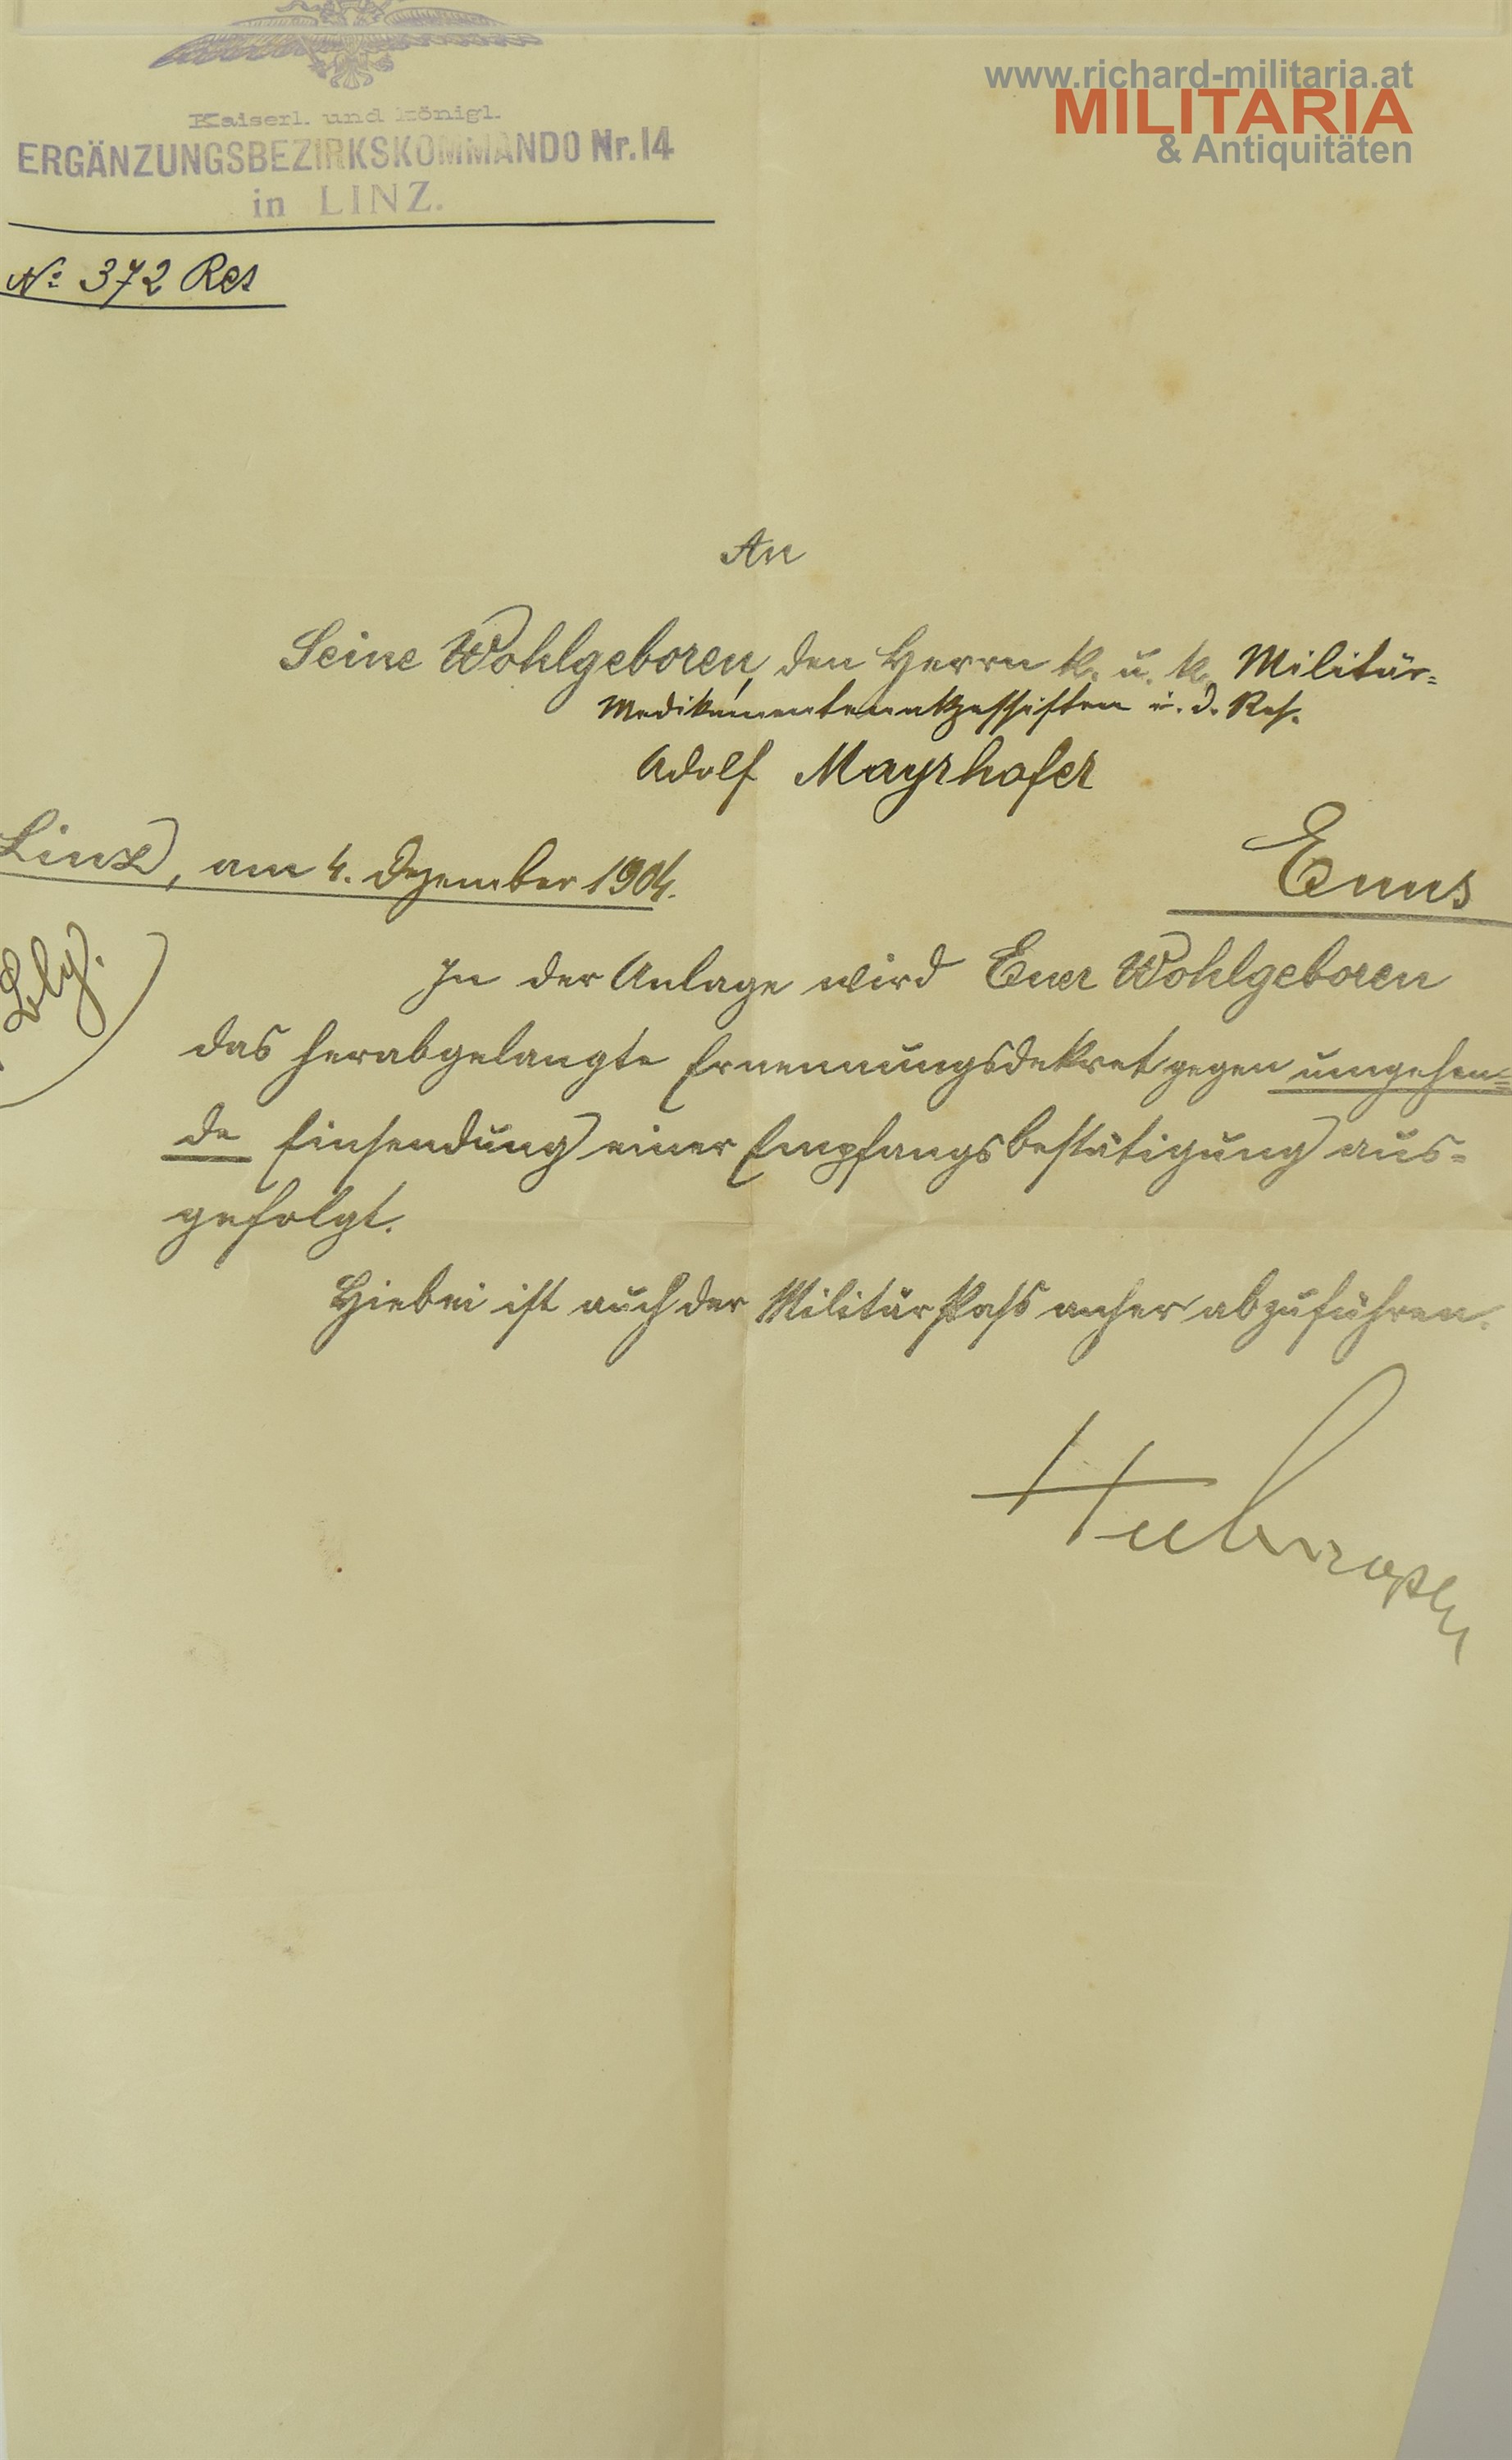 www.richard-militaria.at
MILITARIA
& Antiquitäten
Kaiserl. und königl.
ERGÄNZUNGSBEZIRKSKOMMANDO Nr. 14
in LINZ.
No 372 Res
An
Seine Wohlgeboren, den Herrn k. u. k. Militär=
Medikamentenakzessisten i. d. Res.
Adolf Mayrhofer
Enns
Linz, am 4. Dezember 1904.
In der Anlage wird Euer Wohlgeboren
das herabgelangte Ernennungsdekret gegen umgehen=
de Einsendung einer Empfangsbestätigung aus=
gefolgt.
Hiebei ist auch der Militär Pass anher abzuführen.